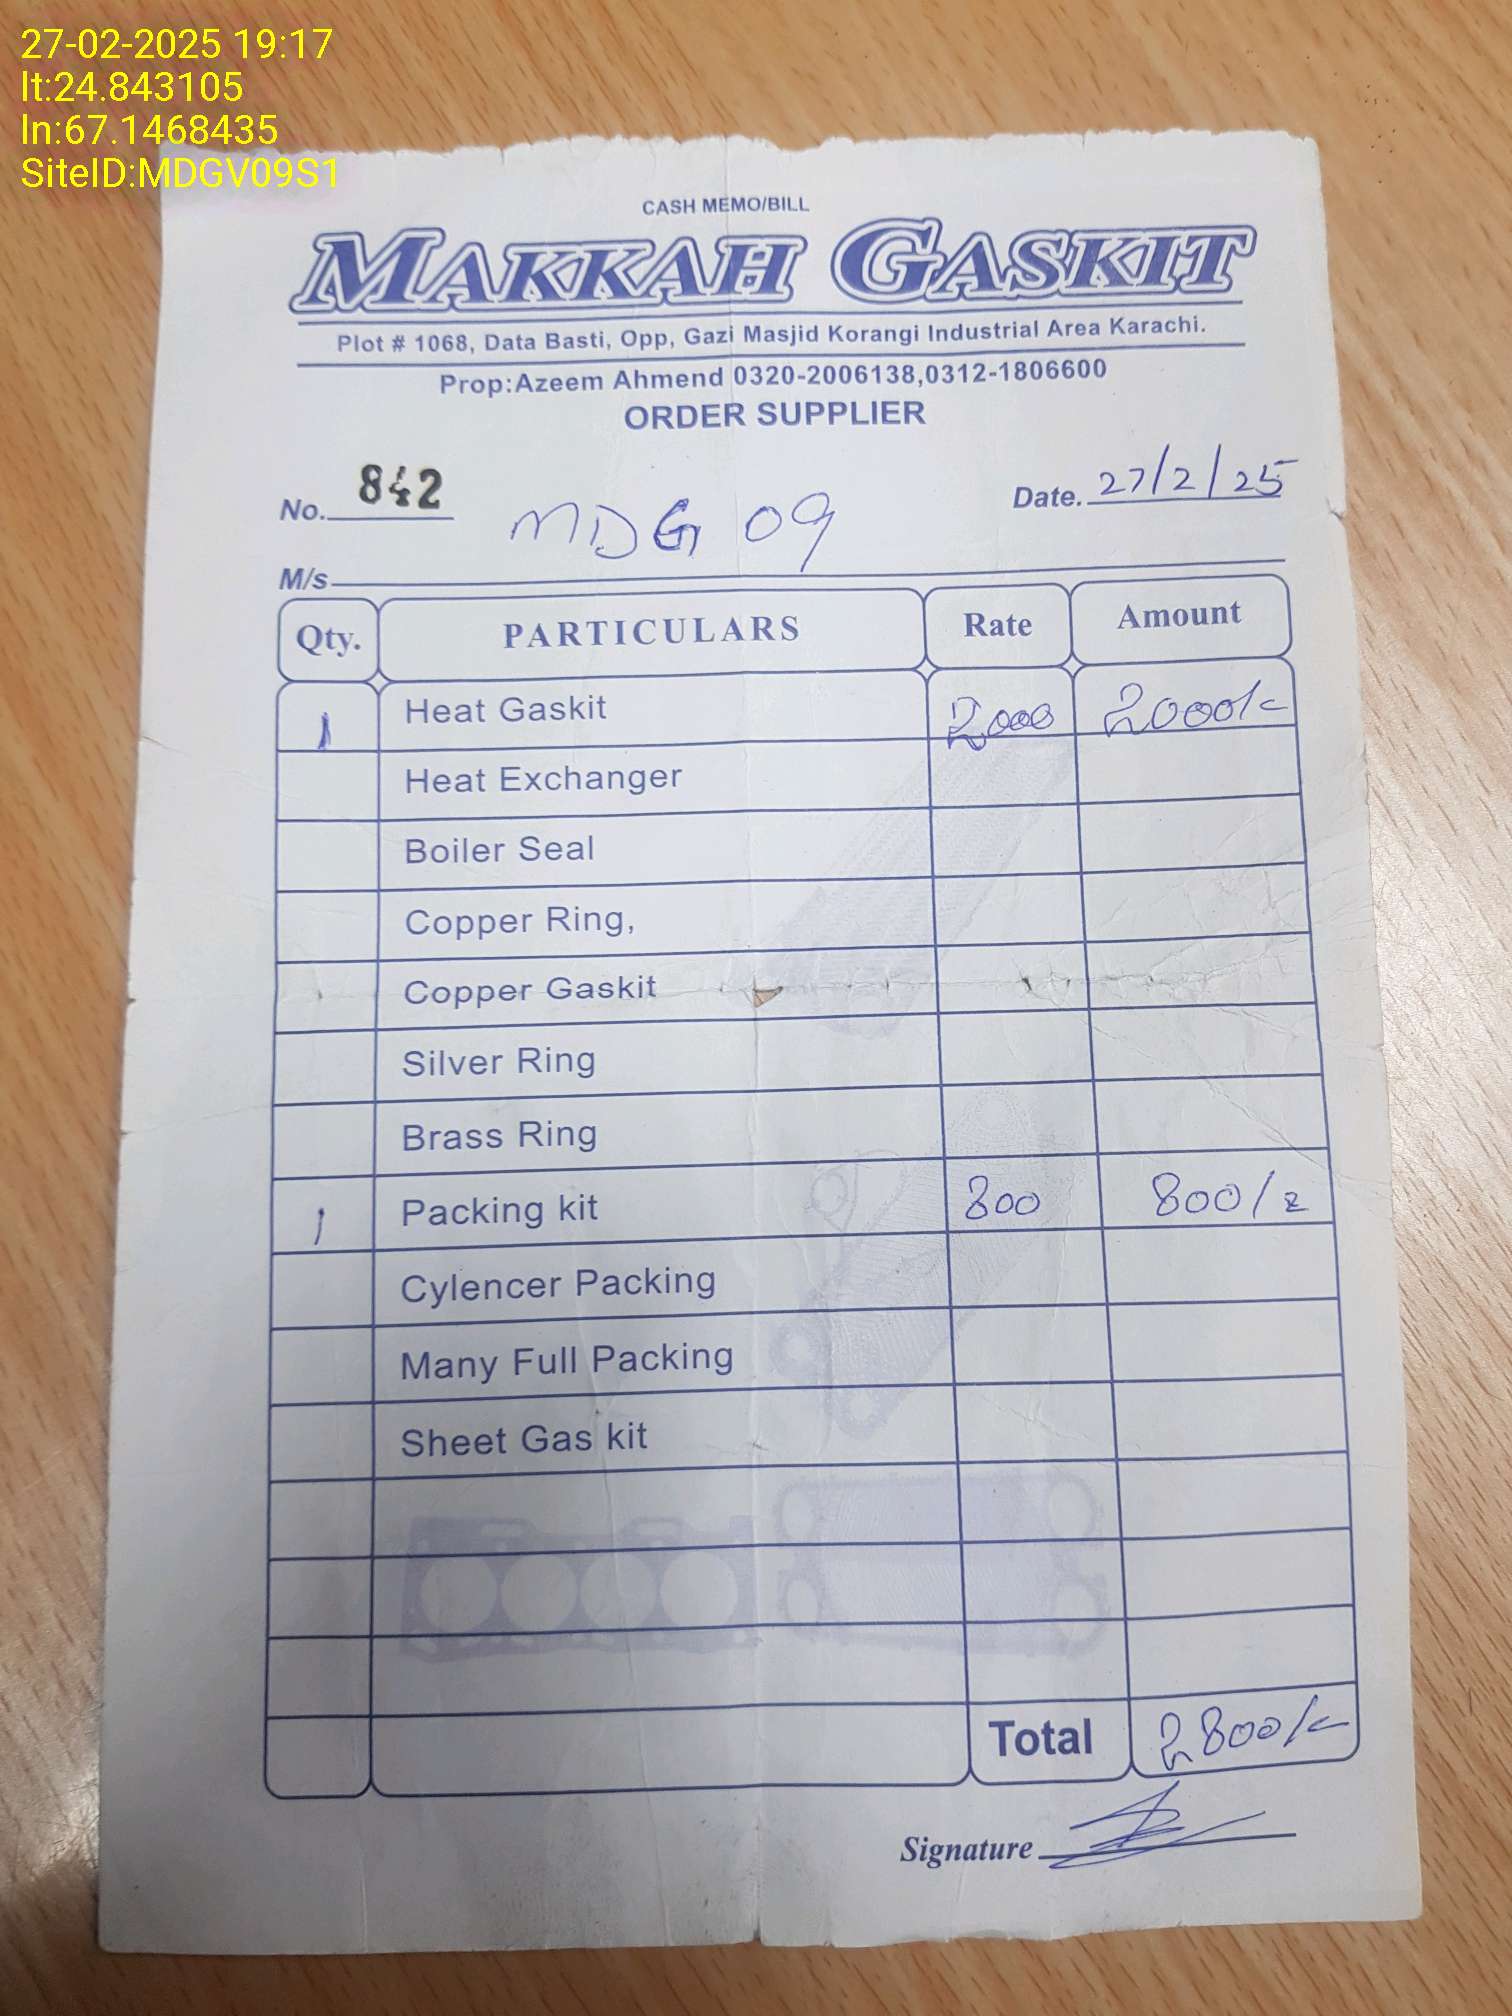 27-02-2025 19:17
lt:24.843105
ln:67.1468435
SiteID:MDGV09S1
CASH MEMO/BILL
MAKKAH GASKIT
Plot # 1068, Data Basti, Opp, Gazi Masjid Korangi Industrial Area Karachi.
Prop:Azeem Ahmend 0320-2006138,0312-1806600
ORDER SUPPLIER
No. 842 Date. 27/2/25
MDG 09
M/s
Qty. PARTICULARS Rate Amount
1 Heat Gaskit 2000 2000/-
Heat Exchanger
Boiler Seal
Copper Ring,
Copper Gaskit
Silver Ring
Brass Ring
1 Packing kit 800 800/=
Cylencer Packing
Many Full Packing
Sheet Gas kit
Total 2800/-
Signature